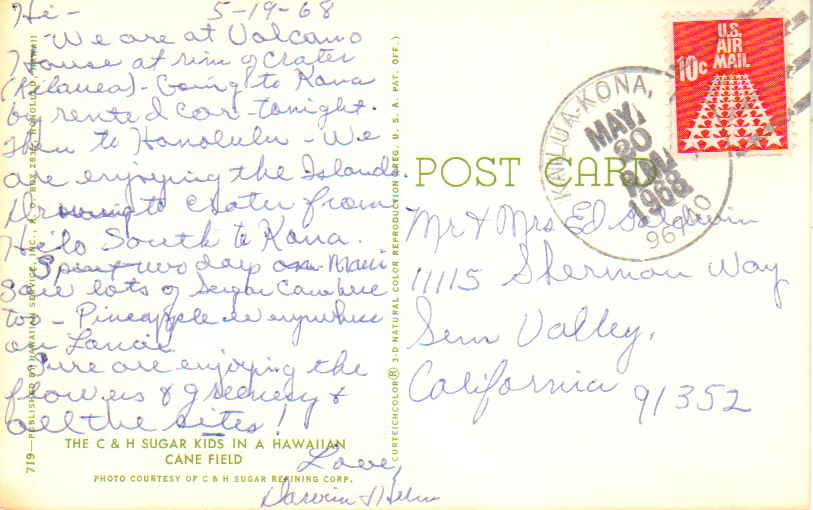 Hi - 5-19-68
We are at Volcano
House at rim of Crater
(Kilauea) - Going to Kona
by rented car - tonight.
Then to Honolulu - We
are enjoying the Islands.
to Crater from
Hilo South to Kona.
Spent two days on Maui
Saw lots of Sugar Cane here
too - Pineapple everywhere
on Lanai.
Sure are enjoying the
flowers & greenery &
all the sites!
Love,
Darwin & Helen
THE C & H SUGAR KIDS IN A HAWAIIAN
CANE FIELD
PHOTO COURTESY OF C & H SUGAR REFINING CORP.
719—PUBLISHED BY HAWAIIAN SERVICE, INC., P. O. BOX HONOLULU, HAWAII
CURTEICHCOLOR® 3-D NATURAL COLOR REPRODUCTION (REG. U. S. A. PAT. OFF.)
POST CARD
U.S.
AIR
MAIL
10c
KAILUA-KONA,
MAY
20
1968
96740
Mr & Mrs Ed
11115 Sherman Way
Sun Valley,
California 91352